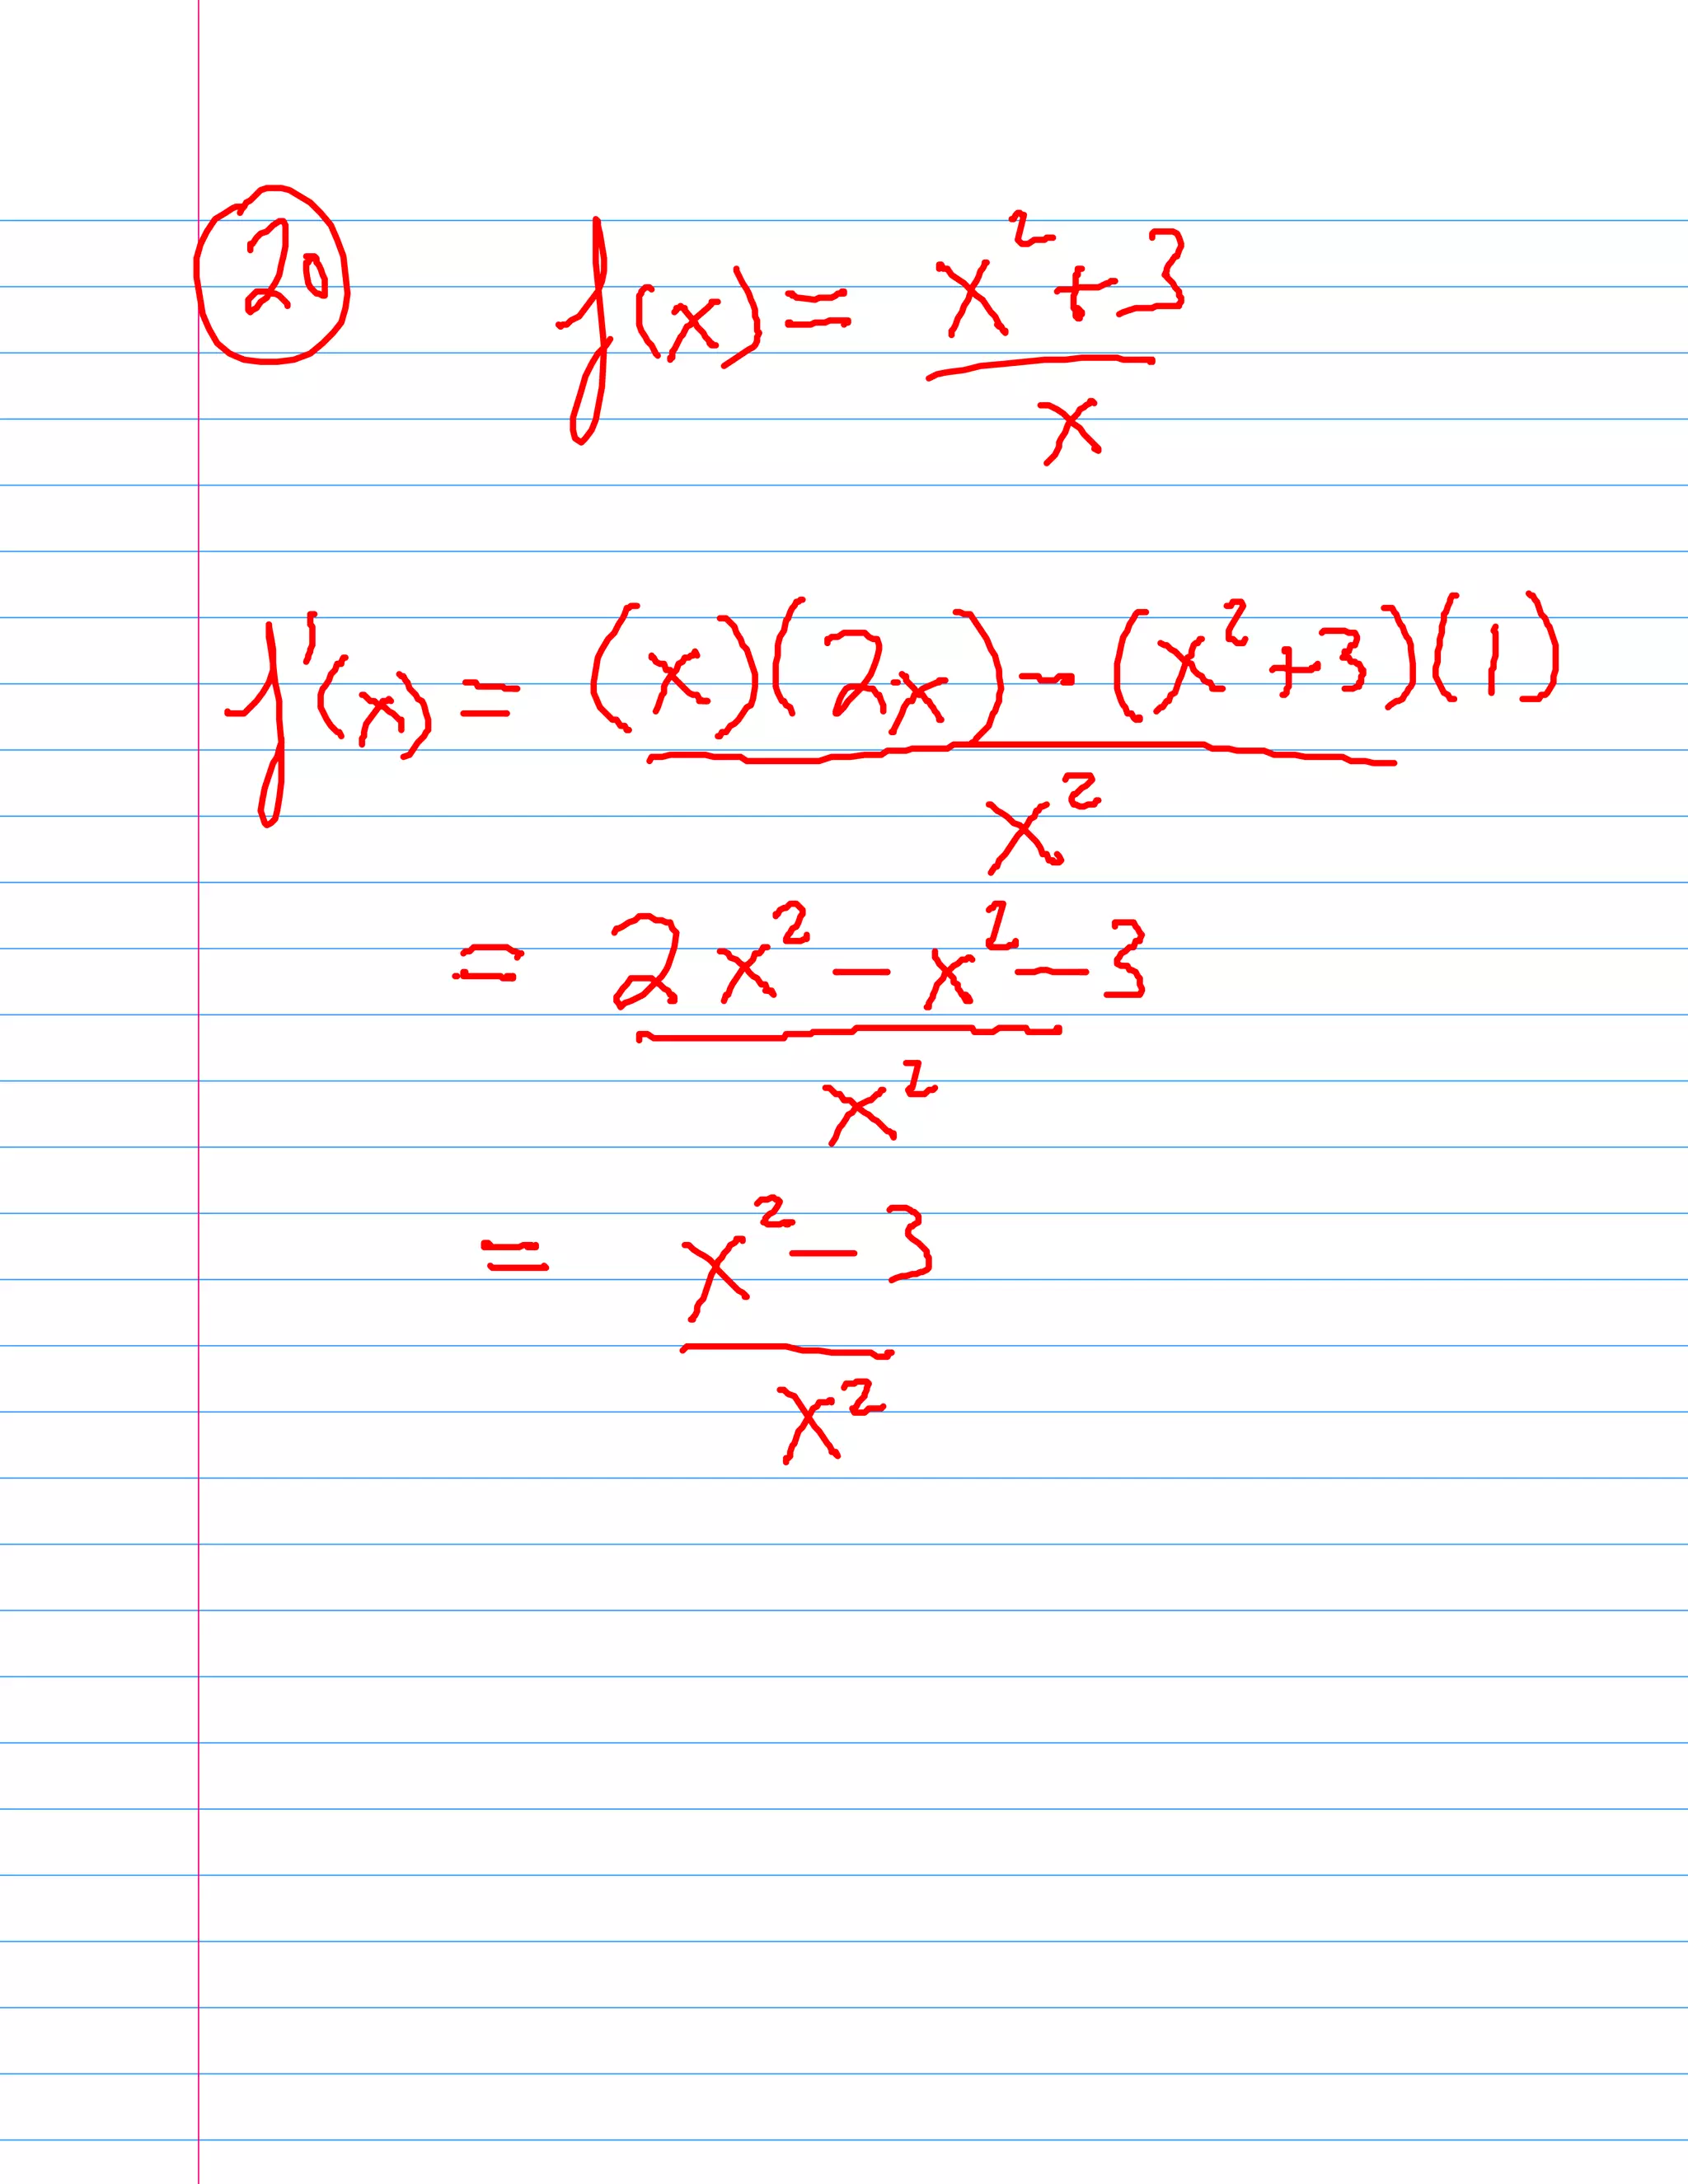 20 f(x) = (x² + 3) / x
f'(x) = ((x)(2x) - (x² + 3)(1)) / x²
= (2x² - x² - 3) / x²
= (x² - 3) / x²